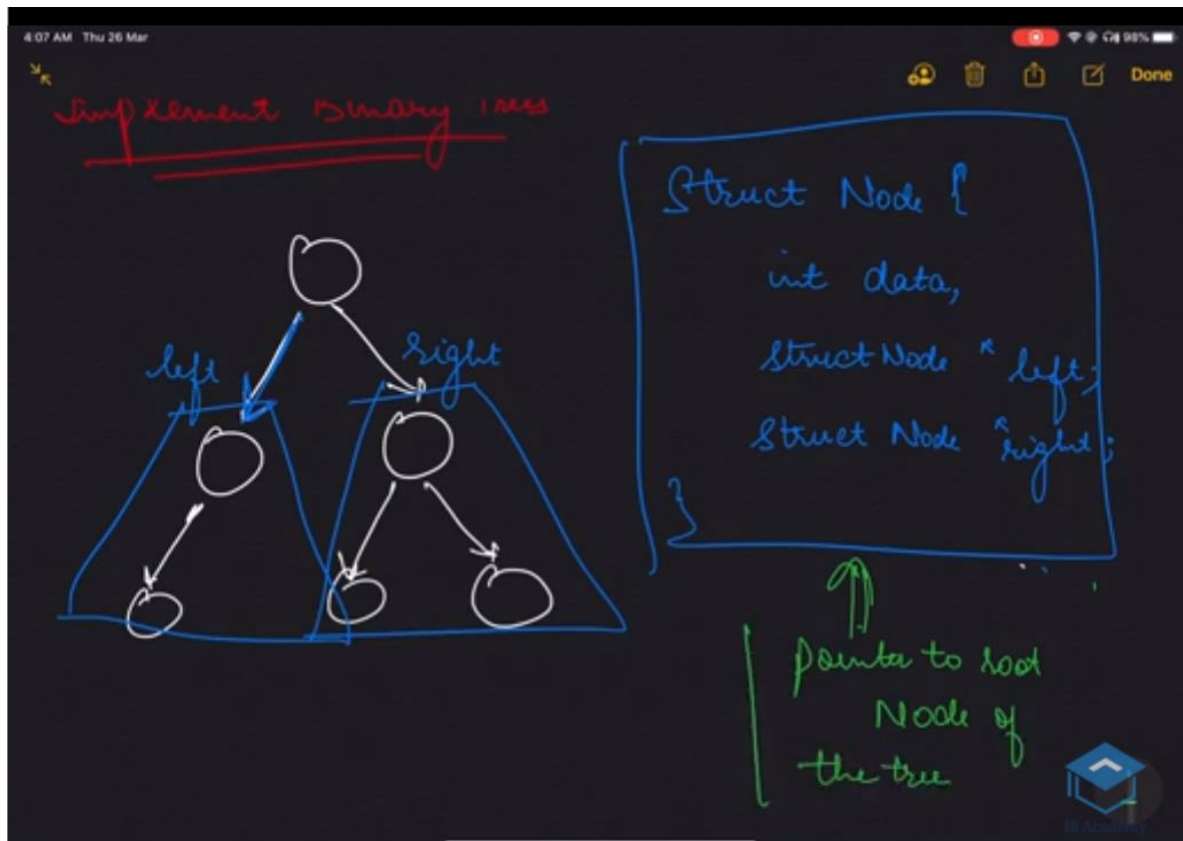 4:07 AM Thu 26 Mar
98%
Done
Implement Binary Trees
left
right
Struct Node {
int data,
struct Node * left;
struct Node * right;
}
pointer to root
Node of
the tree
IB Academy